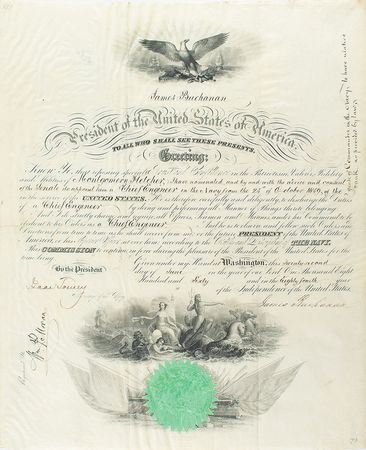 James Buchanan
President of the United States of America,
TO ALL WHO SHALL SEE THESE PRESENTS,
Greeting:
Know Ye, That reposing special Trust and Confidence in the Patriotism, Valour, Fidelity
and Abilities of Montgomery Fletcher, I have nominated, and by and with the advice and consent
of the Senate do appoint him a Chief Engineer in the Navy from the 25th of October 1859,
in the service of the UNITED STATES. He is therefore carefully and diligently to discharge the Duties
of Chief Engineer by doing and performing all Manner of Things thereto belonging.
And I do strictly charge, and require all Officers, Seamen and Marines under his Command to be
obedient to his Orders as Chief Engineer. And he is to observe and follow such Orders and
Directions from time to time as he shall receive from me or the future PRESIDENT of the United States of
America, or his Superior Officer set over him, according to the Rules and Discipline of THE NAVY.
This COMMISSION to continue in force during the pleasure of the President of the United States for the
time being.
Given under my Hand at Washington, this twenty second
By the President
day of June in the year of our Lord One Thousand Eight
Hundred and Sixty and in the eighty fourth year
of the Independence of the United States.
Isaac Toucey
James Buchanan
Secretary of the Navy
Registered